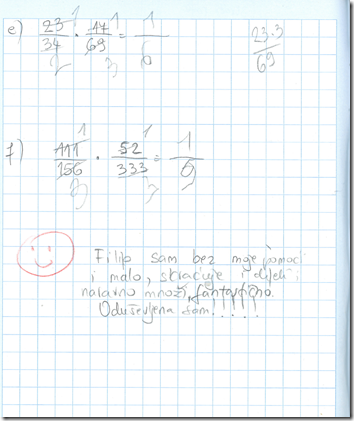 e) 23/34 · 17/69 = 1/6
2 3
1 1
23·3
69
f) 111/156 · 52/333 = 1/9
1 1
3 3
Filip sam bez moje pomoći
i malo, skraćuje i dijeli i
naravno množi, fantastično.
Oduševljena sam!!!!!!